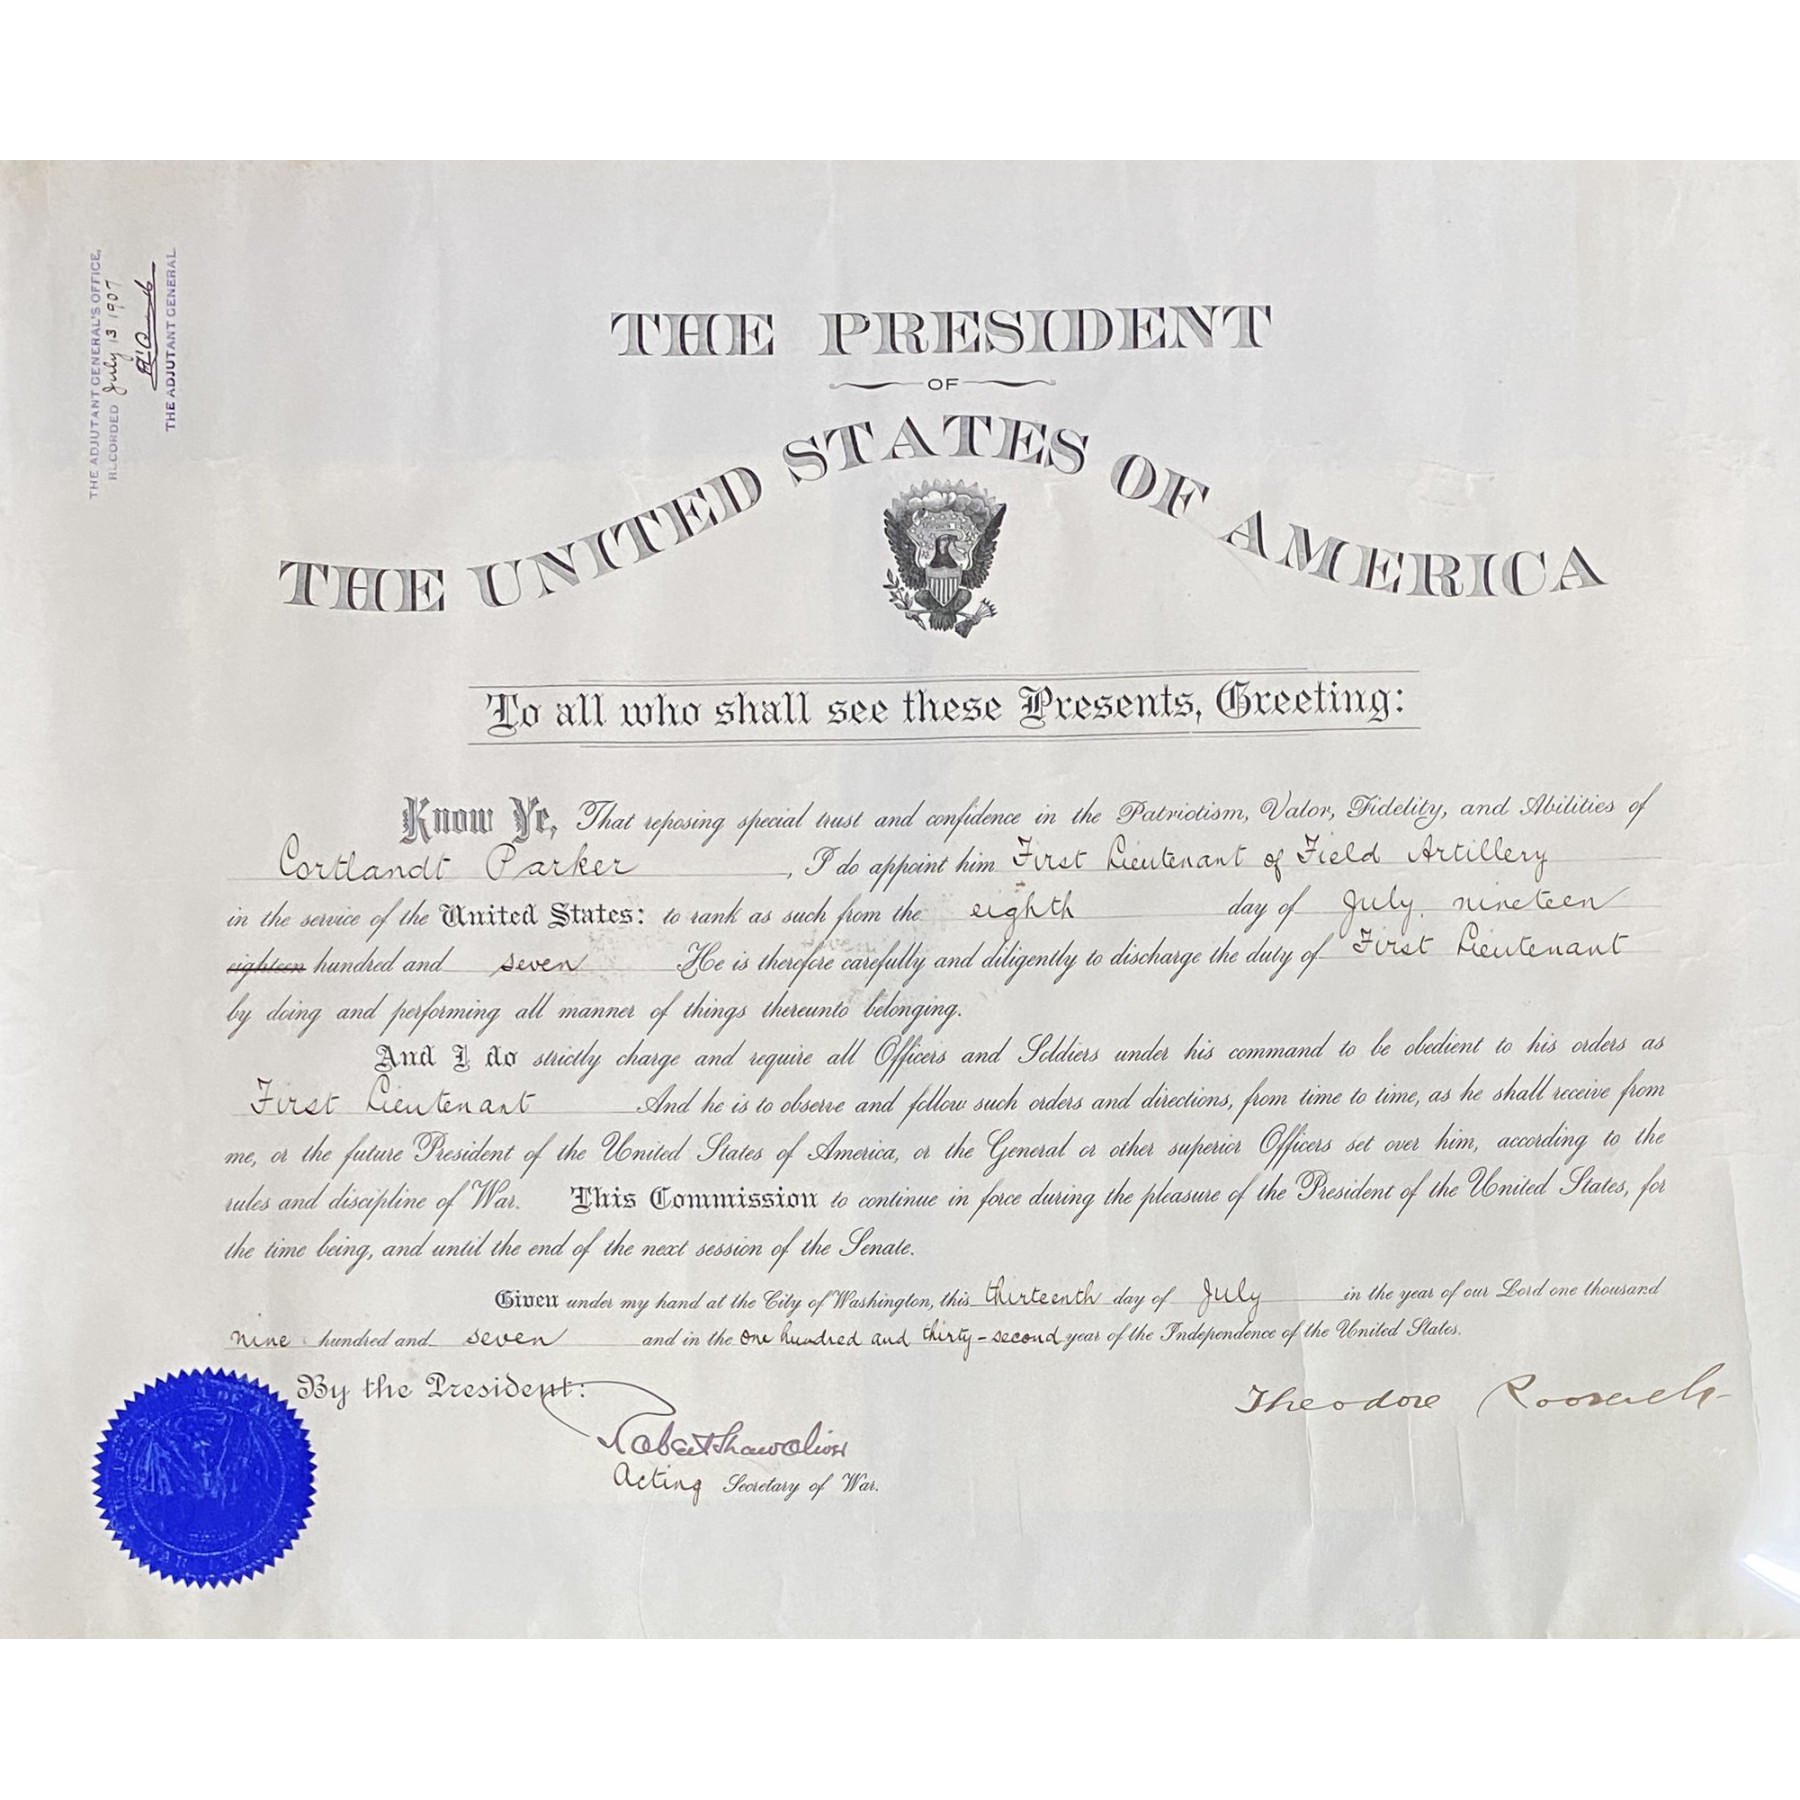 THE ADJUTANT GENERAL'S OFFICE,
RECORDED July 13 1907
THE ADJUTANT GENERAL
THE PRESIDENT
OF
THE UNITED STATES OF AMERICA
To all who shall see these Presents, Greeting:
Know Ye, That reposing special trust and confidence in the Patriotism, Valor, Fidelity, and Abilities of
Cortlandt Parker, I do appoint him First Lieutenant of Field Artillery
in the service of the United States: to rank as such from the eighth day of July, nineteen
eighteen hundred and seven He is therefore carefully and diligently to discharge the duty of First Lieutenant
by doing and performing all manner of things thereunto belonging.
And I do strictly charge and require all Officers and Soldiers under his command to be obedient to his orders as
First Lieutenant And he is to observe and follow such orders and directions, from time to time, as he shall receive from
me, or the future President of the United States of America, or the General or other superior Officers set over him, according to the
rules and discipline of War. This Commission to continue in force during the pleasure of the President of the United States, for
the time being, and until the end of the next session of the Senate.
Given under my hand at the City of Washington, this thirteenth day of July in the year of our Lord one thousand
nine hundred and seven and in the one hundred and thirty-second year of the Independence of the United States.
By the President:
Theodore Roosevelt
Robert Shaw Oliver
Acting Secretary of War.